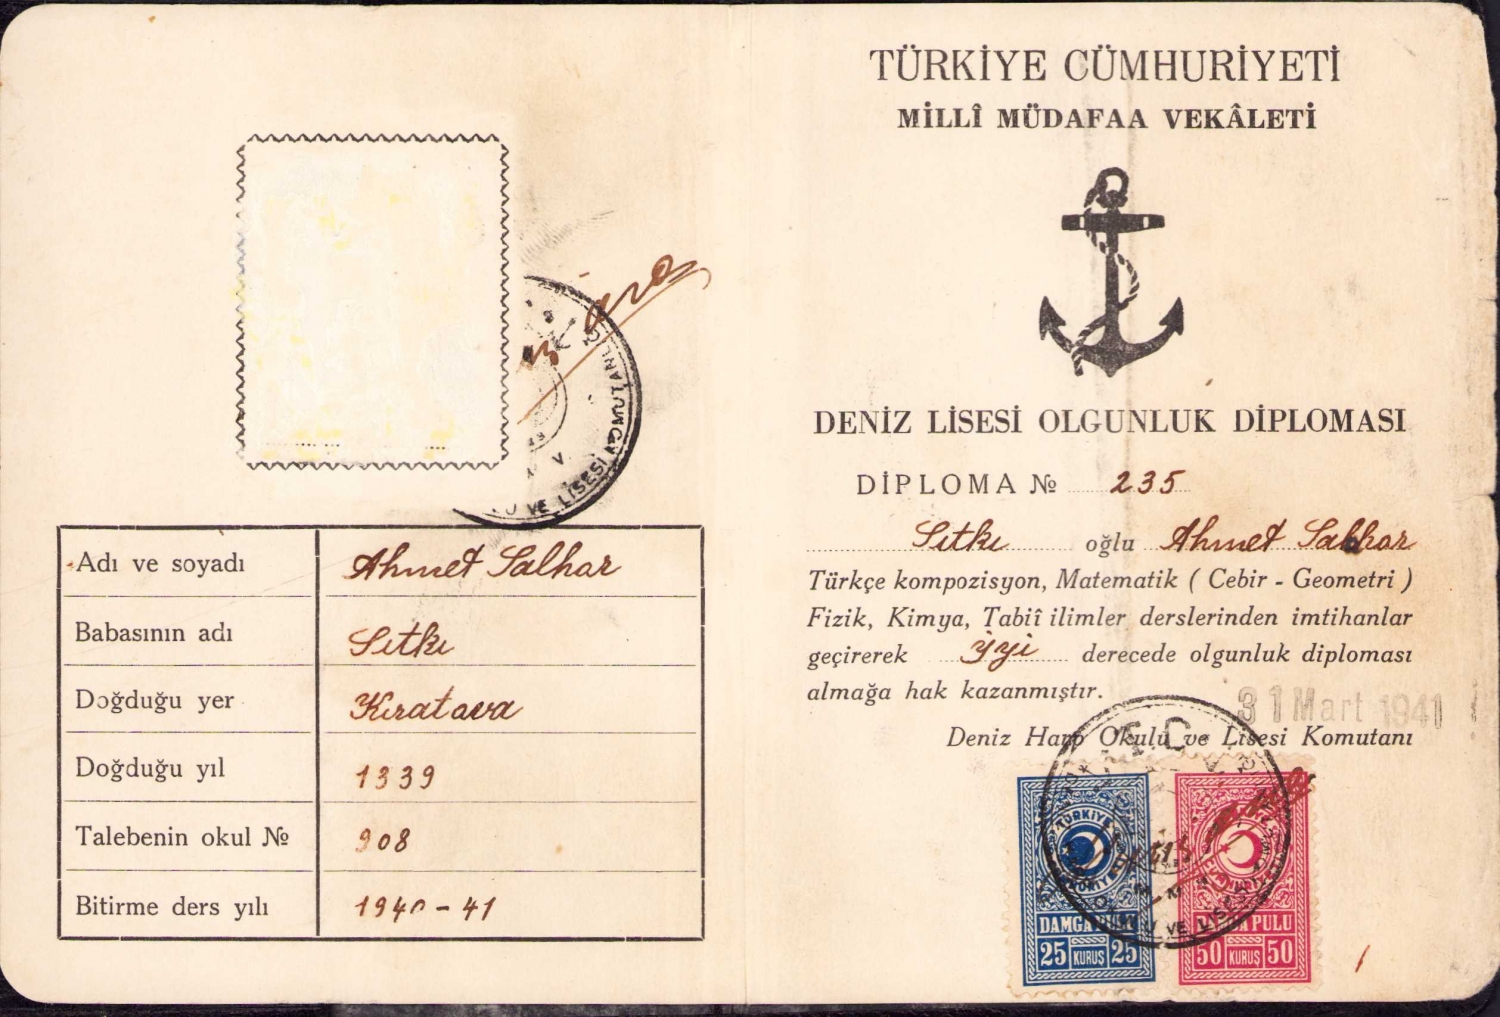 Adı ve soyadı Ahmet Salhar
Babasının adı Sıtkı
Doğduğu yer Kıratova
Doğduğu yıl 1339
Talebenin okul № 908
Bitirme ders yılı 1940-41
VE LİSESİ KOMUTANLIĞI
TÜRKİYE CÜMHURİYETİ
MİLLÎ MÜDAFAA VEKÂLETİ
DENİZ LİSESİ OLGUNLUK DİPLOMASI
DİPLOMA № 235
Sıtkı oğlu Ahmet Salhar
Türkçe kompozisyon, Matematik ( Cebir - Geometri )
Fizik, Kimya, Tabiî ilimler derslerinden imtihanlar
geçirerek iyi derecede olgunluk diploması
almağa hak kazanmıştır.
31 Mart 1941
Deniz Harp Okulu ve Lisesi Komutanı
T.C.
TÜRKİYE
DAMGA PULU
25 KURUŞ 25
PULU
50 KURUŞ 50
VE LİSESİ